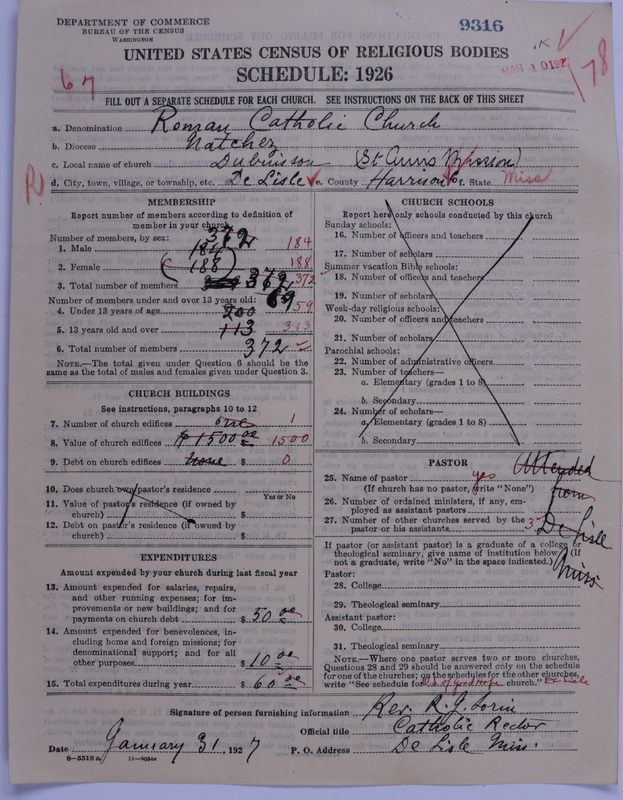 DEPARTMENT OF COMMERCE
BUREAU OF THE CENSUS
WASHINGTON
9316
K
78
67
UNITED STATES CENSUS OF RELIGIOUS BODIES
SCHEDULE: 1926
FILL OUT A SEPARATE SCHEDULE FOR EACH CHURCH. SEE INSTRUCTIONS ON THE BACK OF THIS SHEET
a. Denomination Roman Catholic Church
b. Diocese Natchez
c. Local name of church Dubuisson (St Anns Mission)
d. City, town, village, or township, etc. De Lisle e. County Harrison f. State Miss
R
MEMBERSHIP
Report number of members according to definition of
member in your church
Number of members, by sex: 372
1. Male 184 184
2. Female 188 188
3. Total number of members 372 372
Number of members under and over 13 years old: 69
4. Under 13 years of age 200 59
5. 13 years old and over 113 313
6. Total number of members 372
NOTE.—The total given under Question 6 should be the
same as the total of males and females given under Question 3.
CHURCH BUILDINGS
See instructions, paragraphs 10 to 12
7. Number of church edifices one 1
8. Value of church edifices $ 1500 00 1500
9. Debt on church edifices none $ 0
10. Does church own pastor's residence
Yes or No
11. Value of pastor's residence (if owned by
church) $
12. Debt on pastor's residence (if owned by
church) $
EXPENDITURES
Amount expended by your church during last fiscal year
13. Amount expended for salaries, repairs,
and other running expenses; for im-
provements or new buildings; and for
payments on church debt $ 50 00
14. Amount expended for benevolences, in-
cluding home and foreign missions; for
denominational support; and for all
other purposes $ 10 00
15. Total expenditures during year $ 60 00
CHURCH SCHOOLS
Report here only schools conducted by this church
Sunday schools:
16. Number of officers and teachers
17. Number of scholars
Summer vacation Bible schools:
18. Number of officers and teachers
19. Number of scholars
Week-day religious schools:
20. Number of officers and teachers
21. Number of scholars
Parochial schools:
22. Number of administrative officers
23. Number of teachers—
a. Elementary (grades 1 to 8)
b. Secondary
24. Number of scholars—
a. Elementary (grades 1 to 8)
b. Secondary
PASTOR
25. Name of pastor yes Attended
(If church has no pastor, write "None") from
26. Number of ordained ministers, if any, em-
ployed as assistant pastors
27. Number of other churches served by the
pastor or his assistants 3 De Lisle
Miss
If pastor (or assistant pastor) is a graduate of a college or
theological seminary, give name of institution below. (If
not a graduate, write "No" in the space indicated.)
Pastor:
28. College
29. Theological seminary
Assistant pastor:
30. College
31. Theological seminary
NOTE.—Where one pastor serves two or more churches,
Questions 28 and 29 should be answered only on the schedule
for one of the churches; on the schedules for the other churches,
write "See schedule for of Good Hope church." De Lisle
Signature of person furnishing information Rev. R. J. Sorin
Official title Catholic Rector
Date January 31, 1927 P. O. Address De Lisle Miss.
8-5518 a